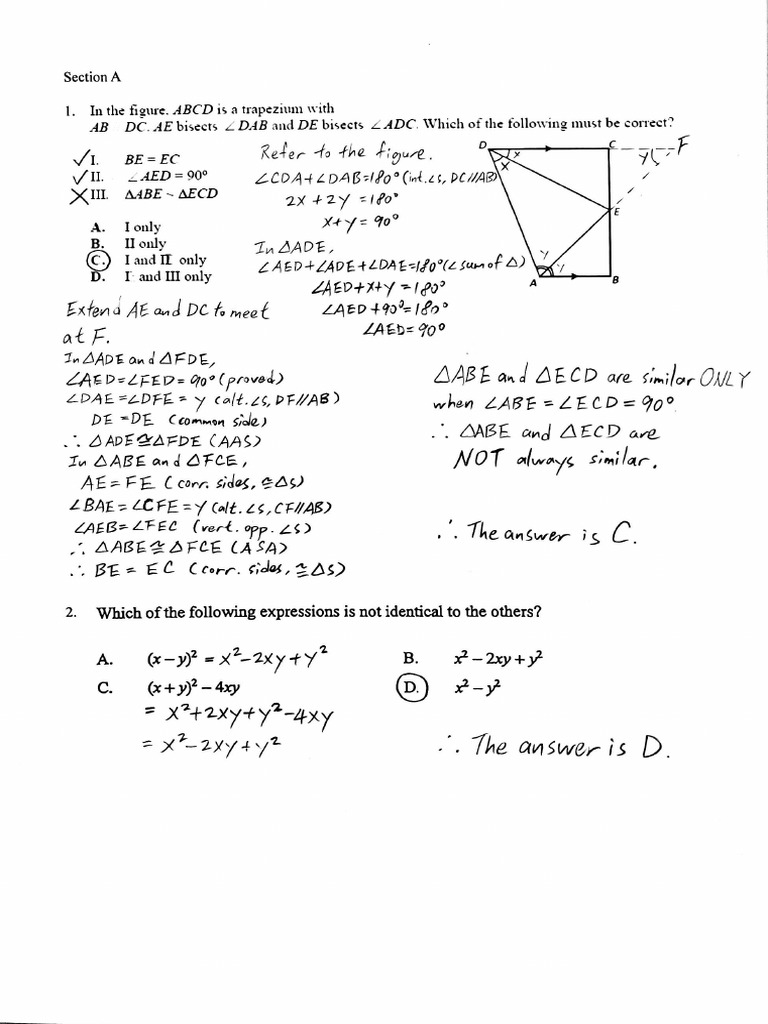 Section A
1. In the figure. ABCD is a trapezium with
AB DC. AE bisects ∠DAB and DE bisects ∠ADC. Which of the following must be correct?
✓I. BE = EC
✓II. ∠AED = 90°
✗III. ΔABE ~ ΔECD
A. I only
B. II only
C. I and II only
D. I and III only
Refer to the figure.
∠CDA+∠DAB=180° (int.∠s, DC//AB)
2x + 2y = 180°
x+y = 90°
In △ADE,
∠AED+∠ADE+∠DAE=180°(∠ sum of △)
∠AED+x+y = 180°
∠AED+90°=180°
∠AED=90°
D
C
F
E
A
B
x
x
y
y
y
Extend AE and DC to meet
at F.
In △ADE and △FDE,
∠AED=∠FED=90° (proved)
∠DAE=∠DFE = y (alt.∠s, DF//AB)
DE =DE (common side)
∴ △ADE≅△FDE (AAS)
In △ABE and △FCE,
AE = FE (corr. sides, ≅△s)
∠BAE=∠CFE=y (alt. ∠s, CF//AB)
∠AEB=∠FEC (vert. opp. ∠s)
∴ △ABE≅△FCE (ASA)
∴ BE = EC (corr. sides, ≅△s)
△ABE and △ECD are similar ONLY
when ∠ABE = ∠ECD = 90°
∴ △ABE and △ECD are
NOT always similar.
∴ The answer is C.
2. Which of the following expressions is not identical to the others?
A. (x – y)² = x²–2xy+y²
B. x² – 2xy + y²
C. (x + y)² – 4xy
= x²+2xy+y²–4xy
= x²–2xy+y²
D. x² – y²
∴ The answer is D.